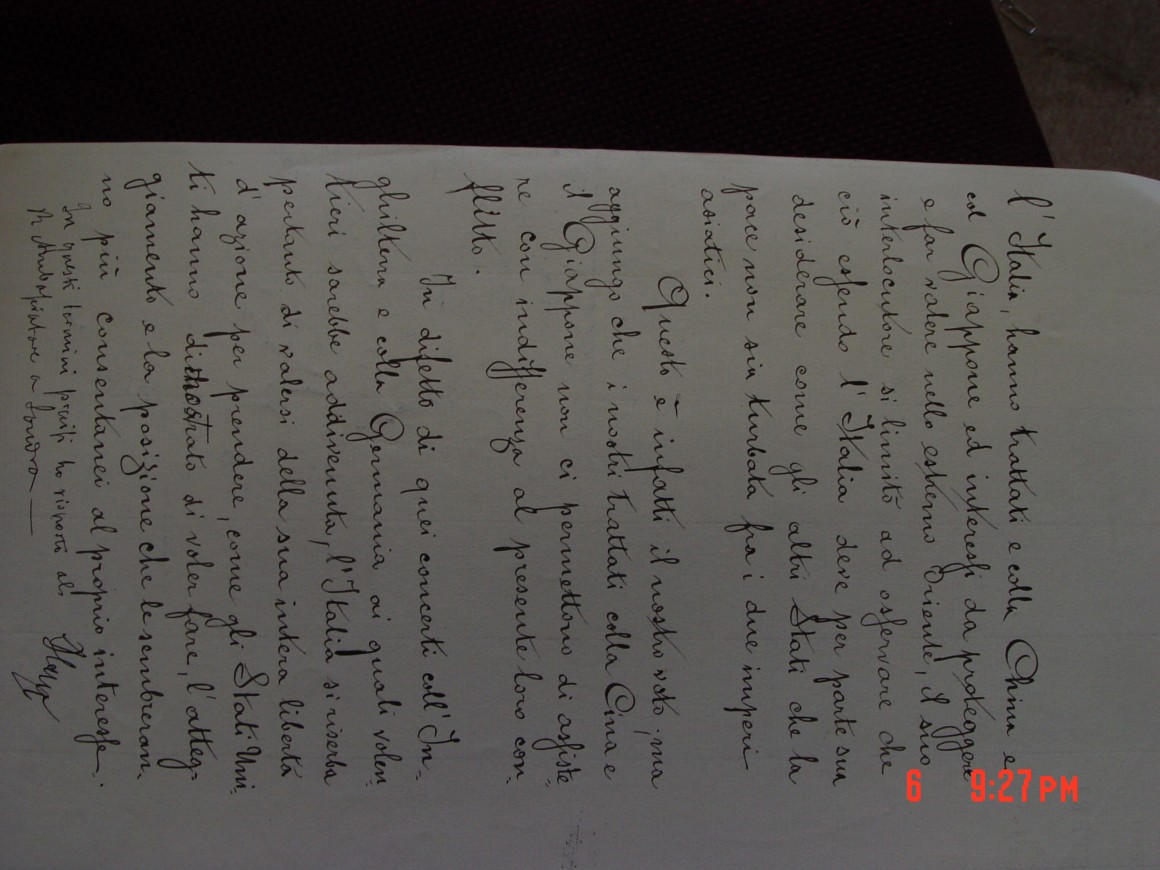 l'Italia, hanno trattati e colla China e
col Giappone ed interessi da proteggere
e far valere nello estremo Oriente, il suo
interlocutore si limitò ad osservare che
ciò essendo l'Italia deve per parte sua
desiderare come gli altri Stati che la
pace non sia turbata fra i due imperi
asiatici.
Questo è infatti il nostro voto; ma
aggiungo che i nostri trattati colla Cina e
il Giappone non ci permettono di assiste-
re con indifferenza al presente loro con-
flitto.
In difetto di quei concerti coll'In-
ghilterra e colla Germania ai quali volen-
tieri sarebbe addivenuta, l'Italia si riserba
pertanto di valersi della sua intera libertà
d'azione per prendere, come gli Stati Uni-
ti hanno dimostrato di voler fare, l'atteg-
giamento e la posizione che le sembreran-
no più consentanei al proprio interesse.
In questi termini precisi ho risposto al
R. Ambasciatore a Londra —
6 9:27 PM